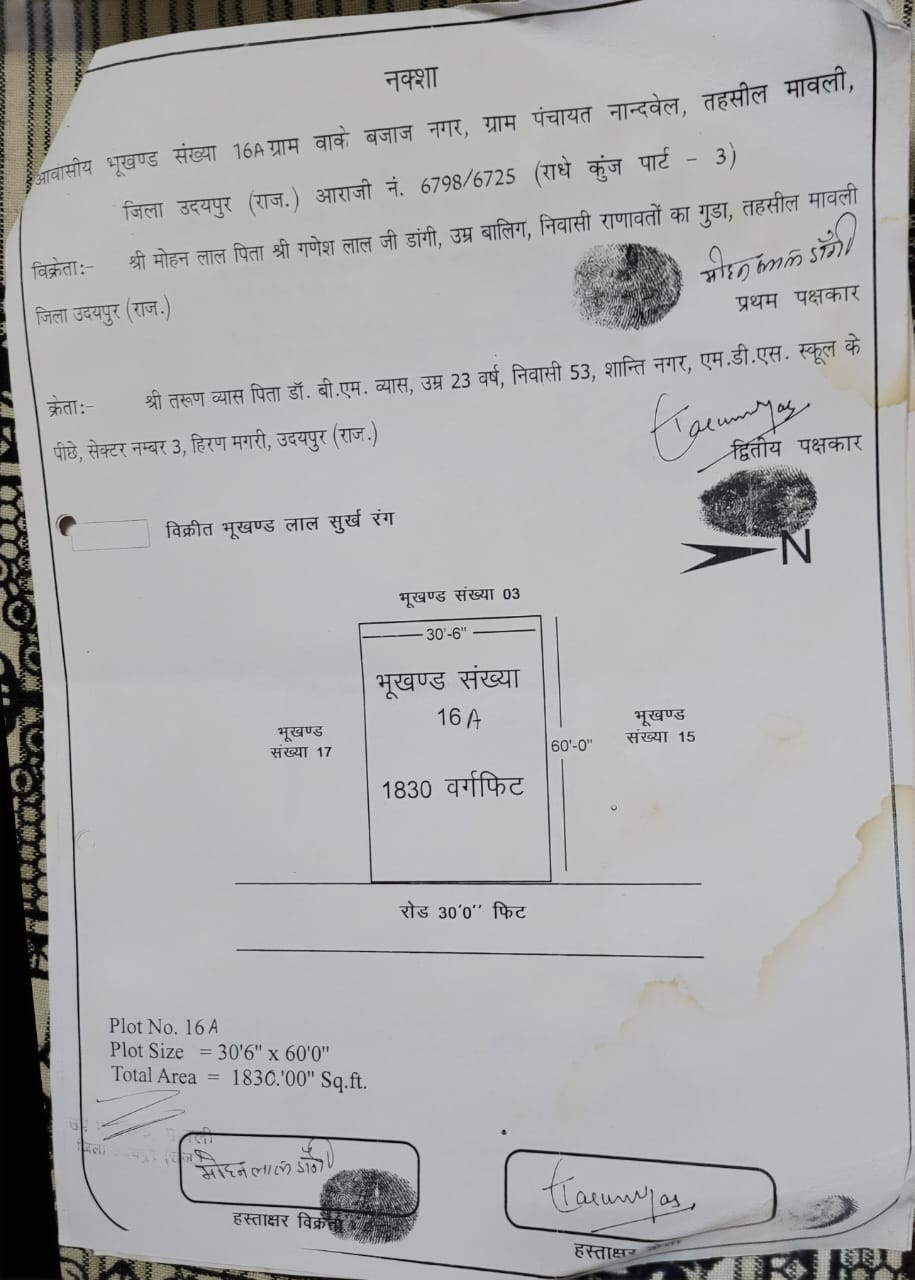 नक्शा
आवासीय भूखण्ड संख्या 16A ग्राम वाके बजाज नगर, ग्राम पंचायत नान्दवेल, तहसील मावली,
जिला उदयपुर (राज.) आराजी नं. 6798/6725 (राधे कुंज पार्ट - 3)
विक्रेता:- श्री मोहन लाल पिता श्री गणेश लाल जी डांगी, उम्र बालिग, निवासी राणावतों का गुडा, तहसील मावली
जिला उदयपुर (राज.)
मोहन लाल डाँगी
प्रथम पक्षकार
क्रेता:- श्री तरूण व्यास पिता डॉ. बी.एम. व्यास, उम्र 23 वर्ष, निवासी 53, शान्ति नगर, एम.डी.एस. स्कूल के
पीछे, सेक्टर नम्बर 3, हिरण मगरी, उदयपुर (राज.)
द्वितीय पक्षकार
विक्रीत भूखण्ड लाल सुर्ख रंग
N
भूखण्ड संख्या 03
30'-6"
भूखण्ड संख्या
16A
1830 वर्गफिट
भूखण्ड
संख्या 17
60'-0"
भूखण्ड
संख्या 15
रोड 30'0'' फिट
Plot No. 16A
Plot Size = 30'6" x 60'0"
Total Area = 1830.'00" Sq.ft.
मोहन लाल डाँगी
हस्ताक्षर विक्रेता
हस्ताक्षर